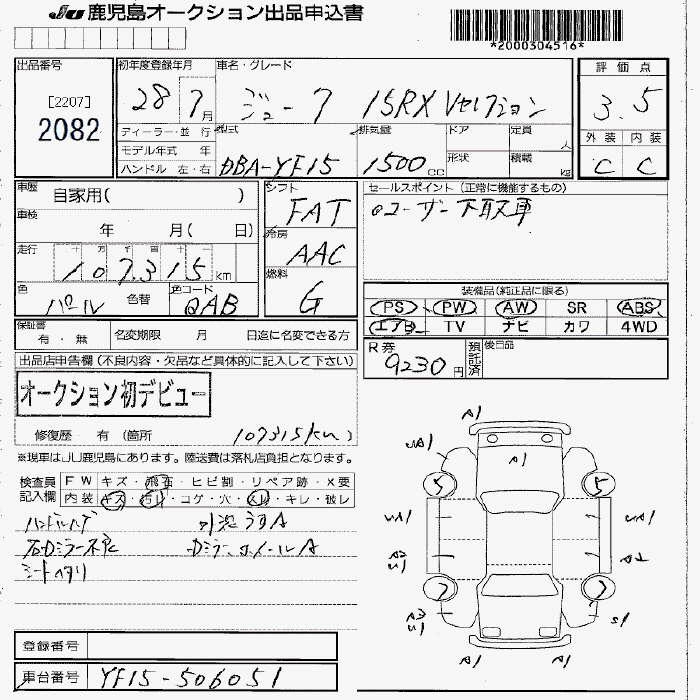 JU 鹿児島オークション出品申込書
*2000304516*
出品番号
[2207]
2082
初年度登録年月
28 7月
車名・グレード
ジューク 15RX Vセレクション
評価点
3.5
外装 内装
C C
ディーラー・並行
モデル年式 年
ハンドル 左・右
型式
DBA-YF15
排気量
1500CC
ドア
形状
定員 人
積載 kg
車歴
自家用( )
車検
年 月( 日)
走行
十 万 千 百 十 一
107315km
色
パール
色替
色コード
QAB
シフト
FAT
冷房
AAC
燃料
G
セールスポイント(正常に機能するもの)
oユーザー下取車
装備品(純正品に限る)
PS PW AW SR ABS
エアB TV ナビ カワ 4WD
保証書
有・無
名変期限 月 日迄に名変できる方
R券
9230円
預託済
後日品
出品店申告欄(不良内容・欠品など具体的に記入して下さい)
オークション初デビュー
修復歴 有(箇所 107315km)
※現車はJU鹿児島にあります。陸送費は落札店負担となります。
検査員記入欄
FW キズ・飛石・ヒビ割・リペア跡・X要
内装 キズ・汚れ・コゲ・穴・スレ・キレ・破レ
ハンドルハゲ
右Dミラー不良
シートヘタリ
A1
A1
5
5
7
7
A1
登録番号
車台番号 YF15-506051